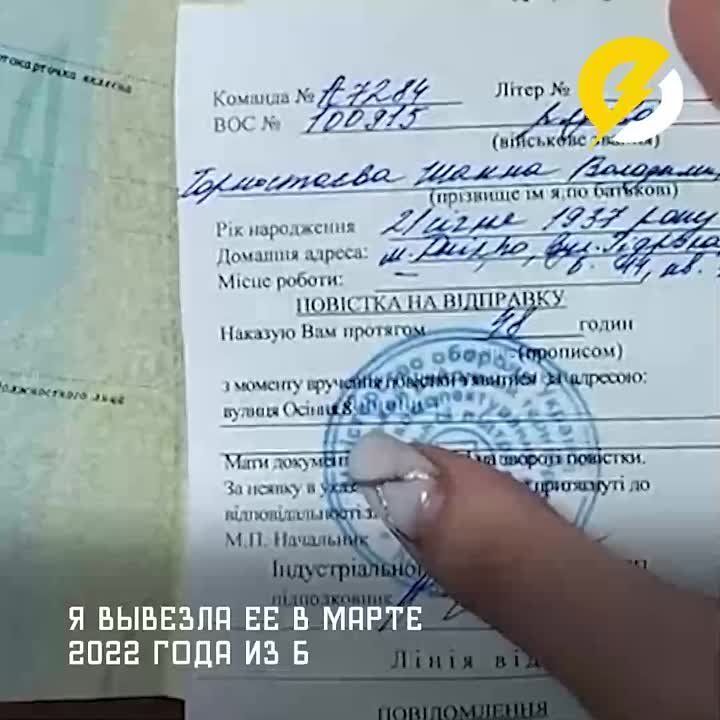 Команда № А7284 Літер №
ВОС № 100915
(військове звання)
Горностаєва Жанна Володими
(прізвище ім я по батькові)
Рік народження 21 січня 1937 року
Домашня адреса: м. Дніпро, вул.
Місце роботи: –
ПОВІСТКА НА ВІДПРАВКУ
Наказую Вам протягом 48 годин
(прописом)
з моменту вручення повістки з'явитися за адресою:
вулиця Осіння 8
Мати документ на звороті повістки.
За неявку в притягнуті до
відповідальності з
М.П. Начальник
Індустріальног
підполковник
Лінія від
ПОВІДОМЛЕННЯ
должностного лица
Я ВЫВЕЗЛА ЕЕ В МАРТЕ
2022 ГОДА ИЗ Б